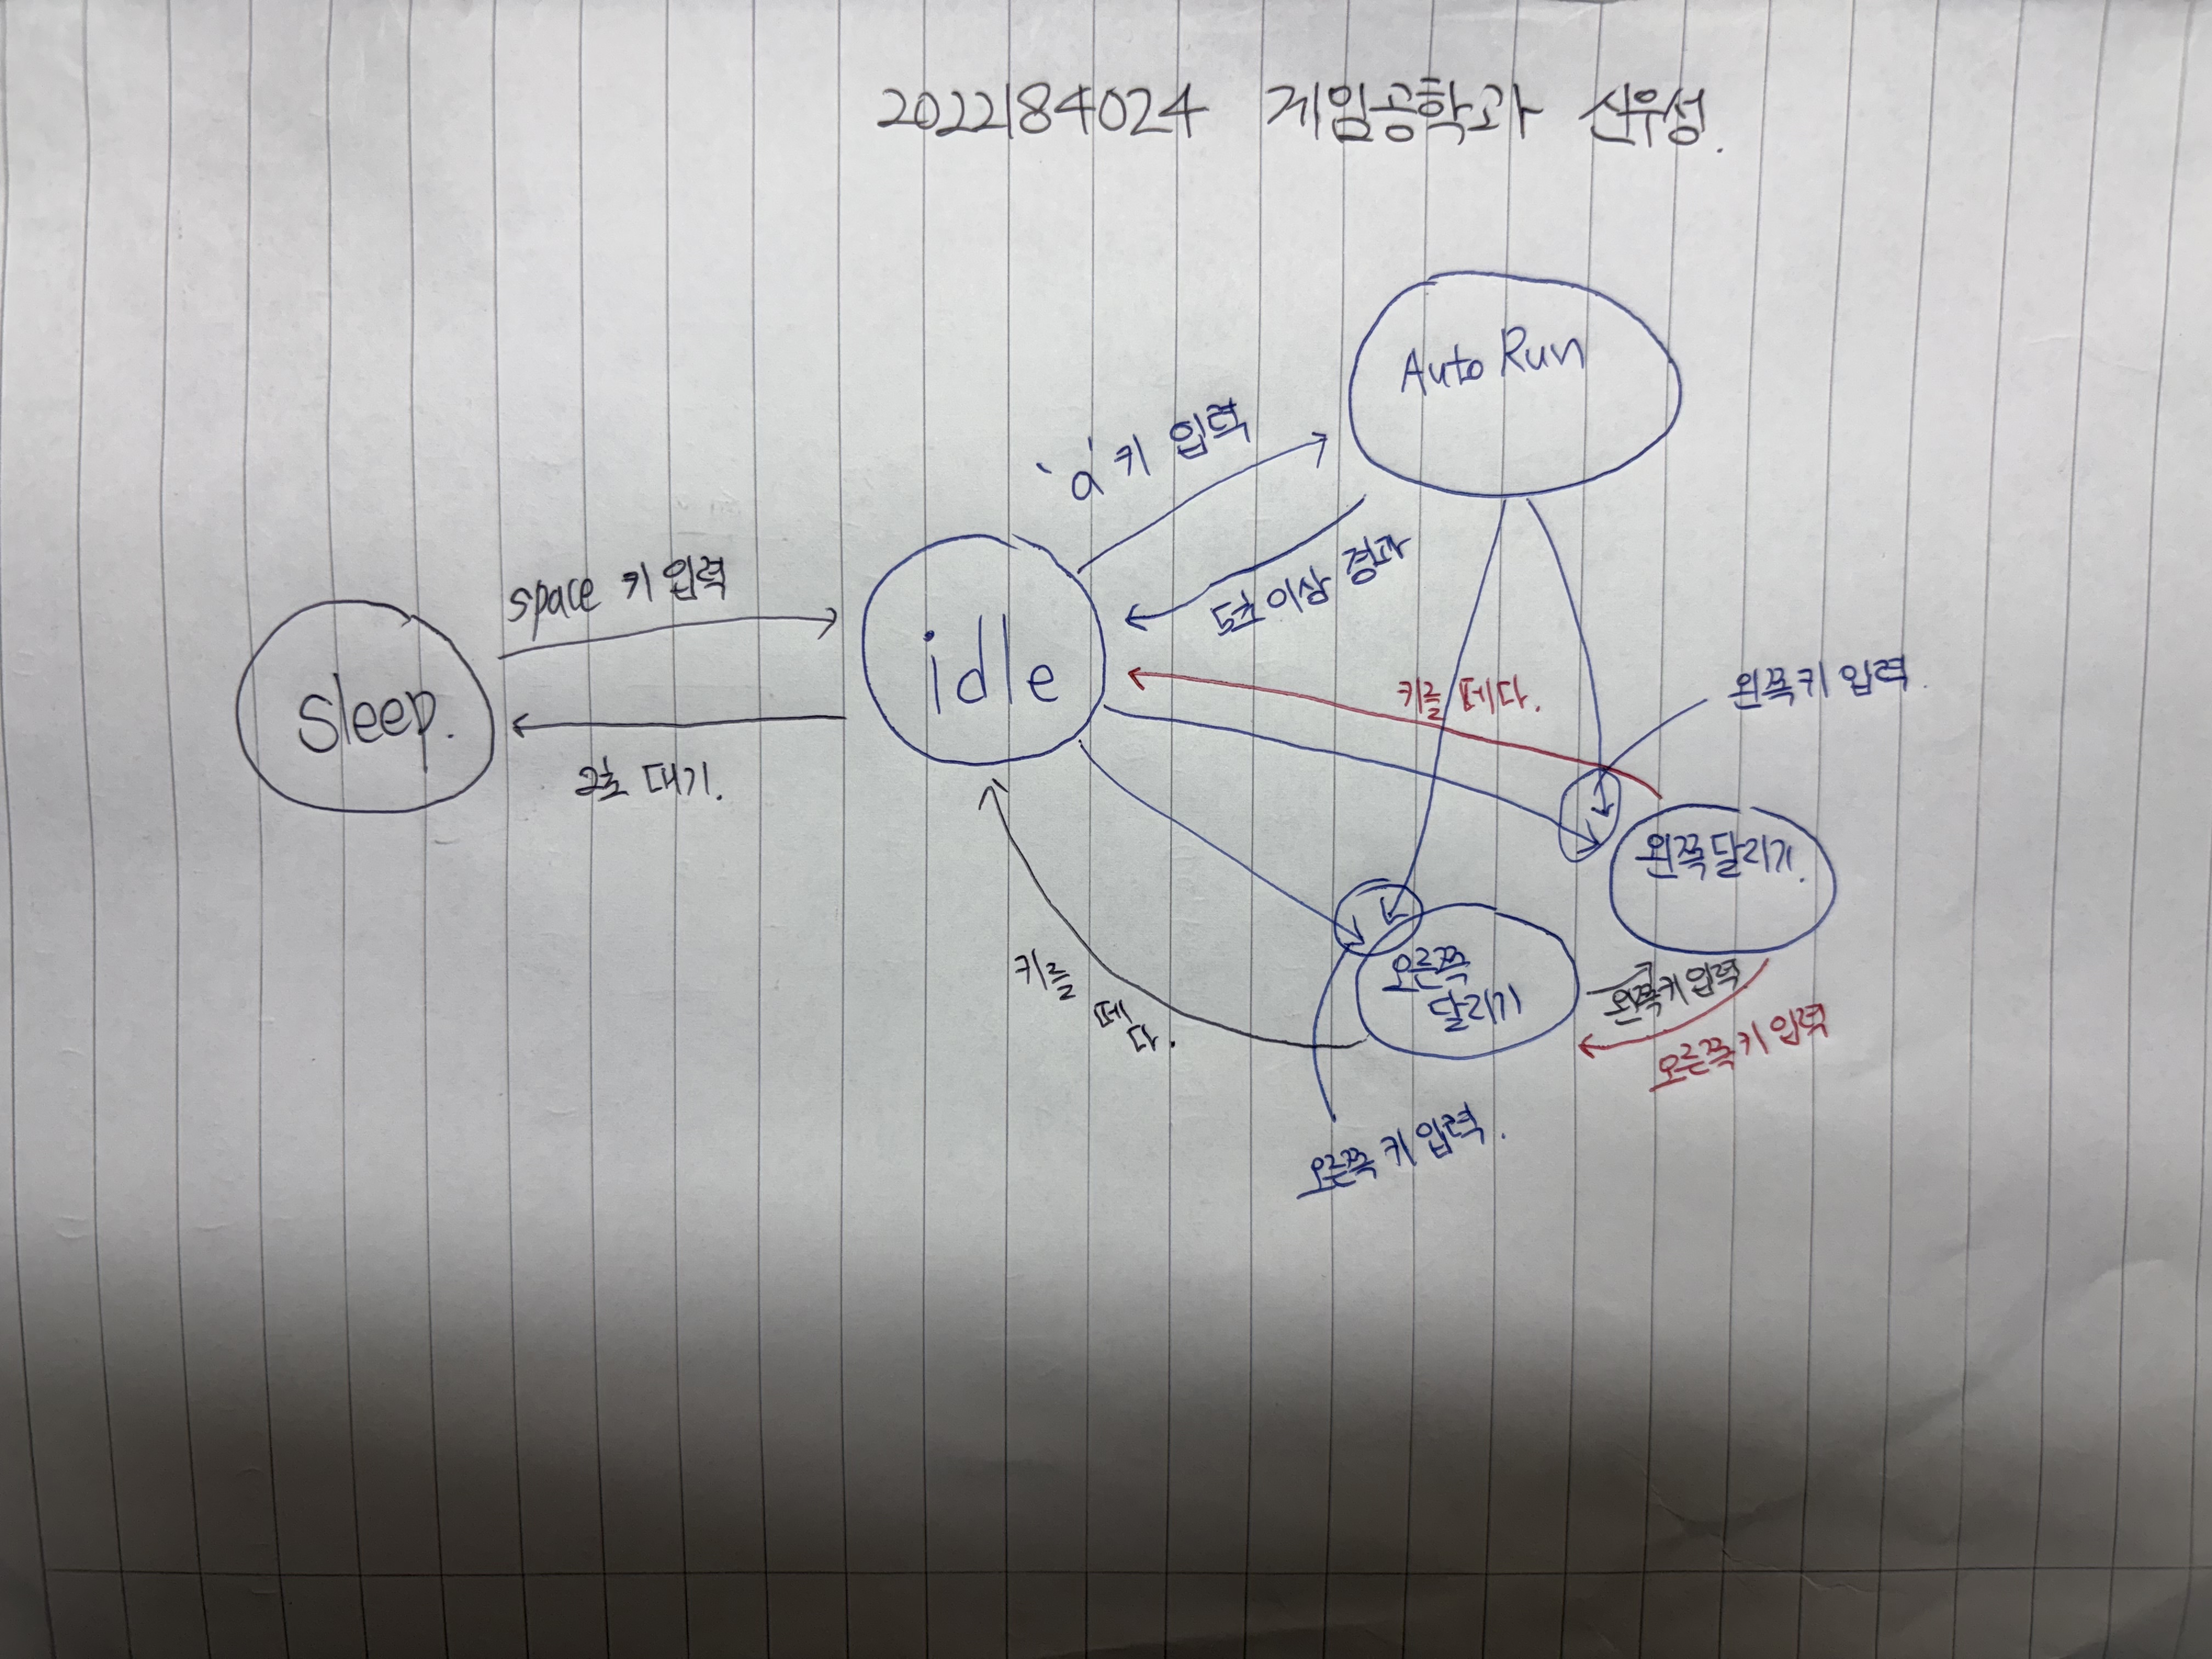 2022184024 게임공학과 신우성.
Auto Run
'a' 키 입력
5초 이상 경과
space 키 입력
sleep.
idle
2초 대기.
키를 떼다.
왼쪽키 입력.
왼쪽달리기.
오른쪽
달리기
왼쪽키입력
오른쪽키 입력
키를
떼
다.
오른쪽 키 입력.